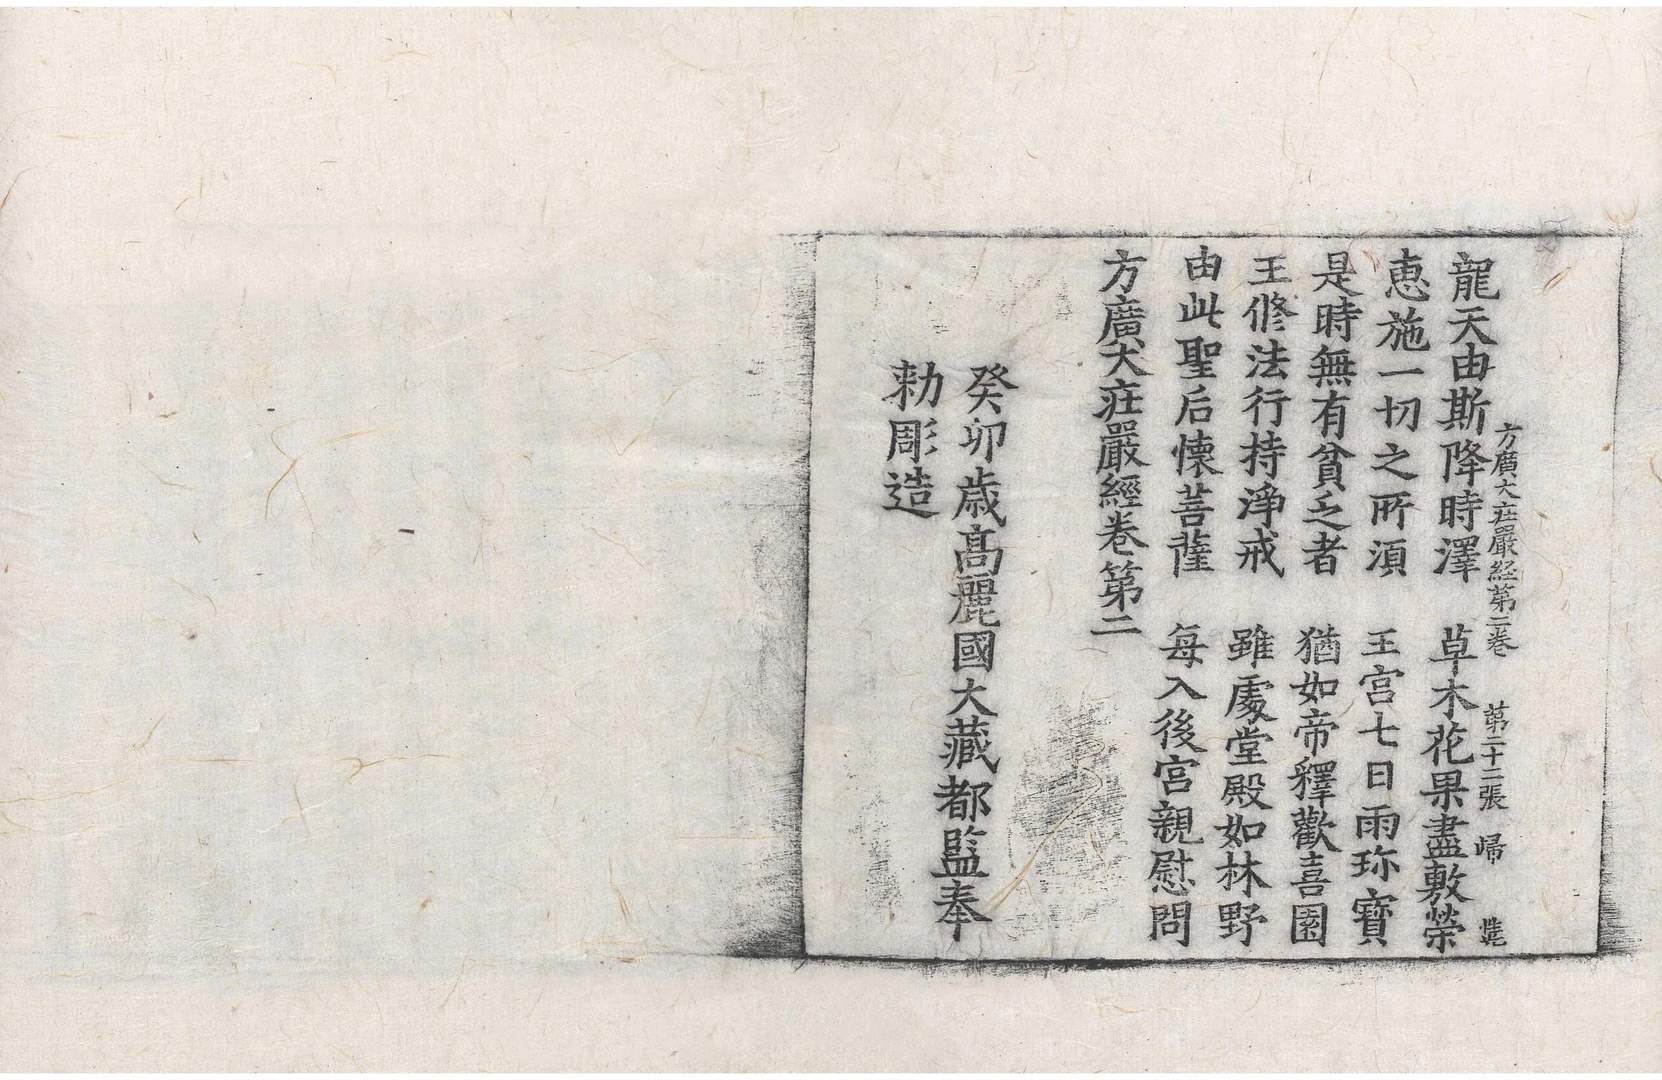 方廣大莊嚴経第二卷　第二十二張　歸
龍天由斯降時澤　草木花果盡敷榮
惠施一切之所須　王宮七日雨珎寶
是時無有貧乏者　猶如帝釋歡喜園
王修法行持淨戒　雖處堂殿如林野
由此聖后懷菩薩　每入後宮親慰問
方廣大莊嚴經卷第二
癸卯歲高麗國大藏都監奉
勅彫造